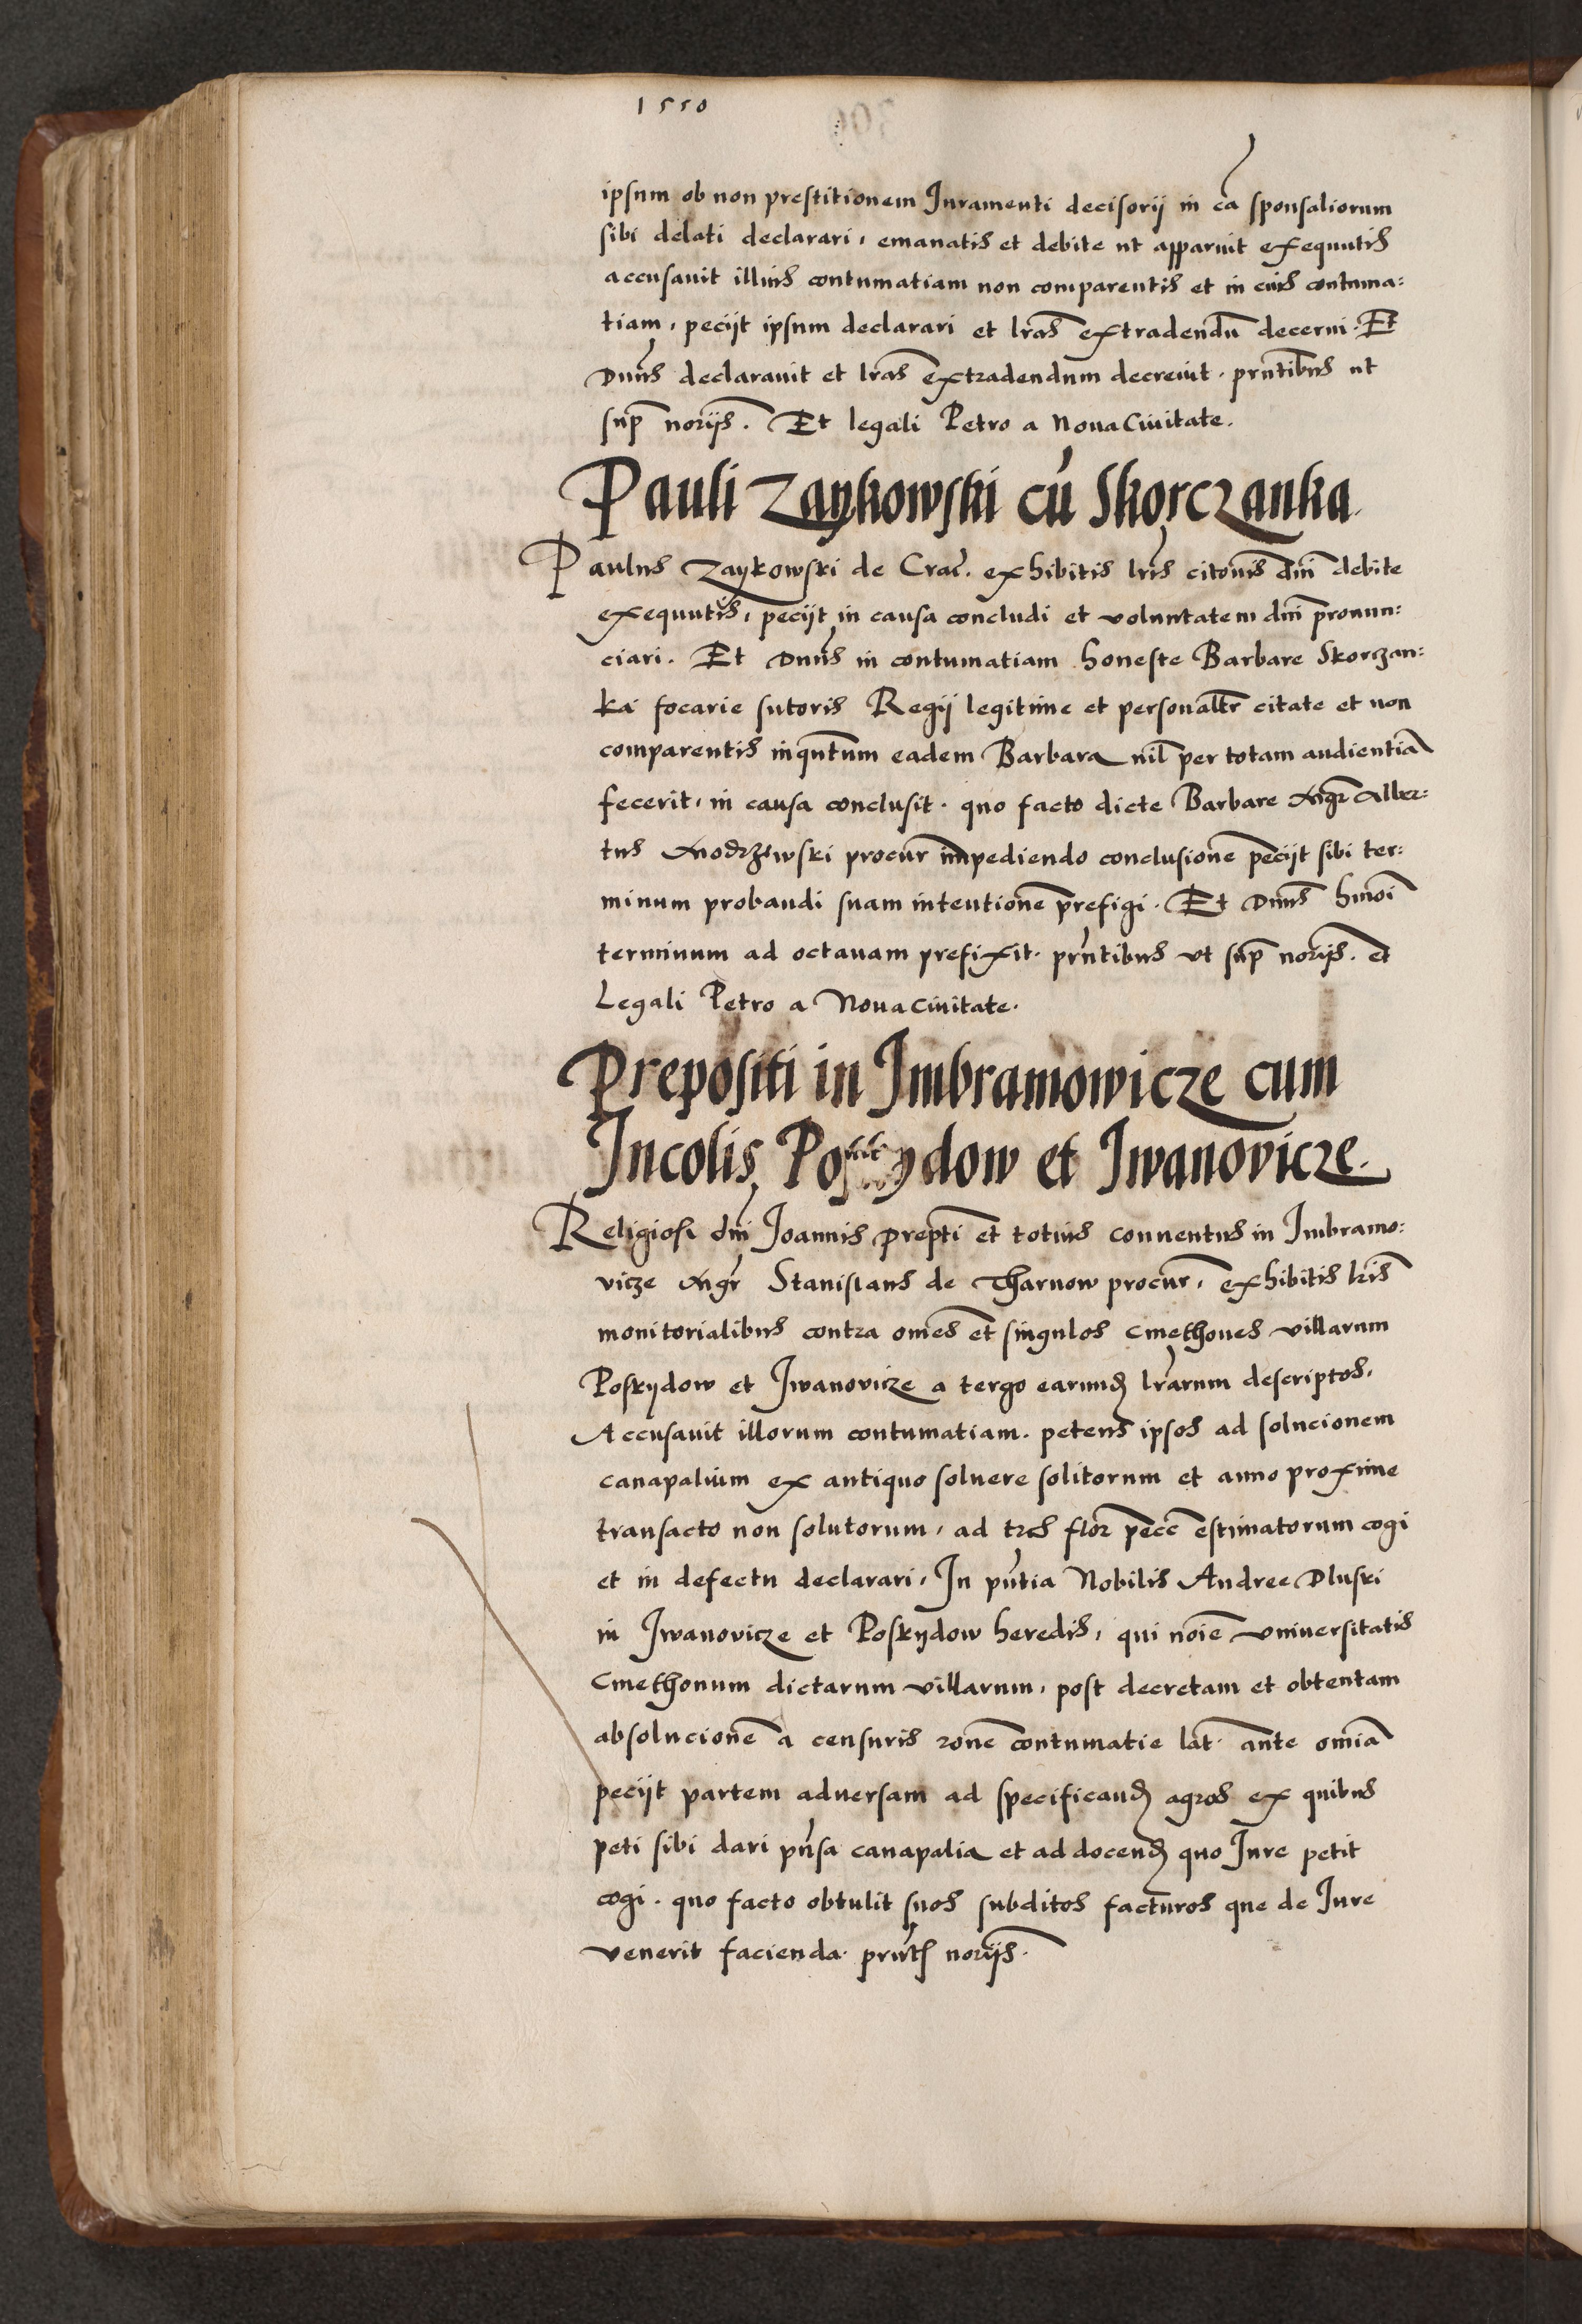 1550
ipsum ob non prestitionem Juramenti decisorij in cā sponsaliorum
sibi delati declarari, emanatis et debite ut apparuit exequutis
accusauit illius contumatiam non comparentis et in cuius contuma:
tiam, pecijt ipsum declarari et lr̄as extradendū decerni. Et
Dnūs declarauit et lr̄as extradendum decreuit. prn̄tibus ut
sup̄ norijs̄. Et legali Petro a Noua Ciuitate.
Pauli Zaykowski cū Skorczanka
Paulus Zaykowski de Crac̄. exhibitis lr̄is citonīs dnī debite
exequutis, pecijt in causa concludi et voluntatem dnī pronun:
ciari. Et Dnūs in contumatiam honeste Barbare Skorczan:
ka focarie sutoris Regij legitime et personalr̄ citate et non
comparentis inqn̄tum eadem Barbara nil̄ per totam audientiā
fecerit, in causa conclusit. quo facto dicte Barbare Mgr̄ Alber:
tus Modrzewski procur̄ impediendo conclusionē pecijt sibi ter:
minum probandi suam intentionē prefigi. Et Dnūs hmōi
terminum ad octauam prefixit. prn̄tibus vt sup̄ norijs̄. et
Legali Petro a Noua ciuitate.
Prepositi in Imbramowicze cum
Incolis Poskydow et Jwanovicze.
Religiosi dnī Joannis Prepti̅ et totius conuentus in Imbramo:
vicze Mgr̄ Stanislaus de Tharnow procur̄, exhibitis lr̄is
monitorialibus contra omēs et singulos Cmethones villarum
Poskydow et Jwanovicze a tergo earund lr̄arum descriptos,
Accusauit illorum contumatiam. petens ipsos ad solucionem
canapalium ex antiquo soluere solitorum et anno proxime
transacto non solutorum, ad tres flor̄ pecc̄ estimatorum cogi
et in defectu declarari, In pn̄tia Nobilis Andree Dluski
in Jwanovicze et Poskydow heredis, qui noīe vniuersitatis
Cmethonum dictarum villarum, post decretam et obtentam
absolucionē a censuris ronē contumatie lat. ante omīa
pecijt partem aduersam ad specificand agros ex quibus
peti sibi dari pn̄sa canapalia et ad docend quo Jure petit
cogi. quo facto obtulit suos subditos facturos que de Jure
venerit facienda. prn̄t norijs̄.